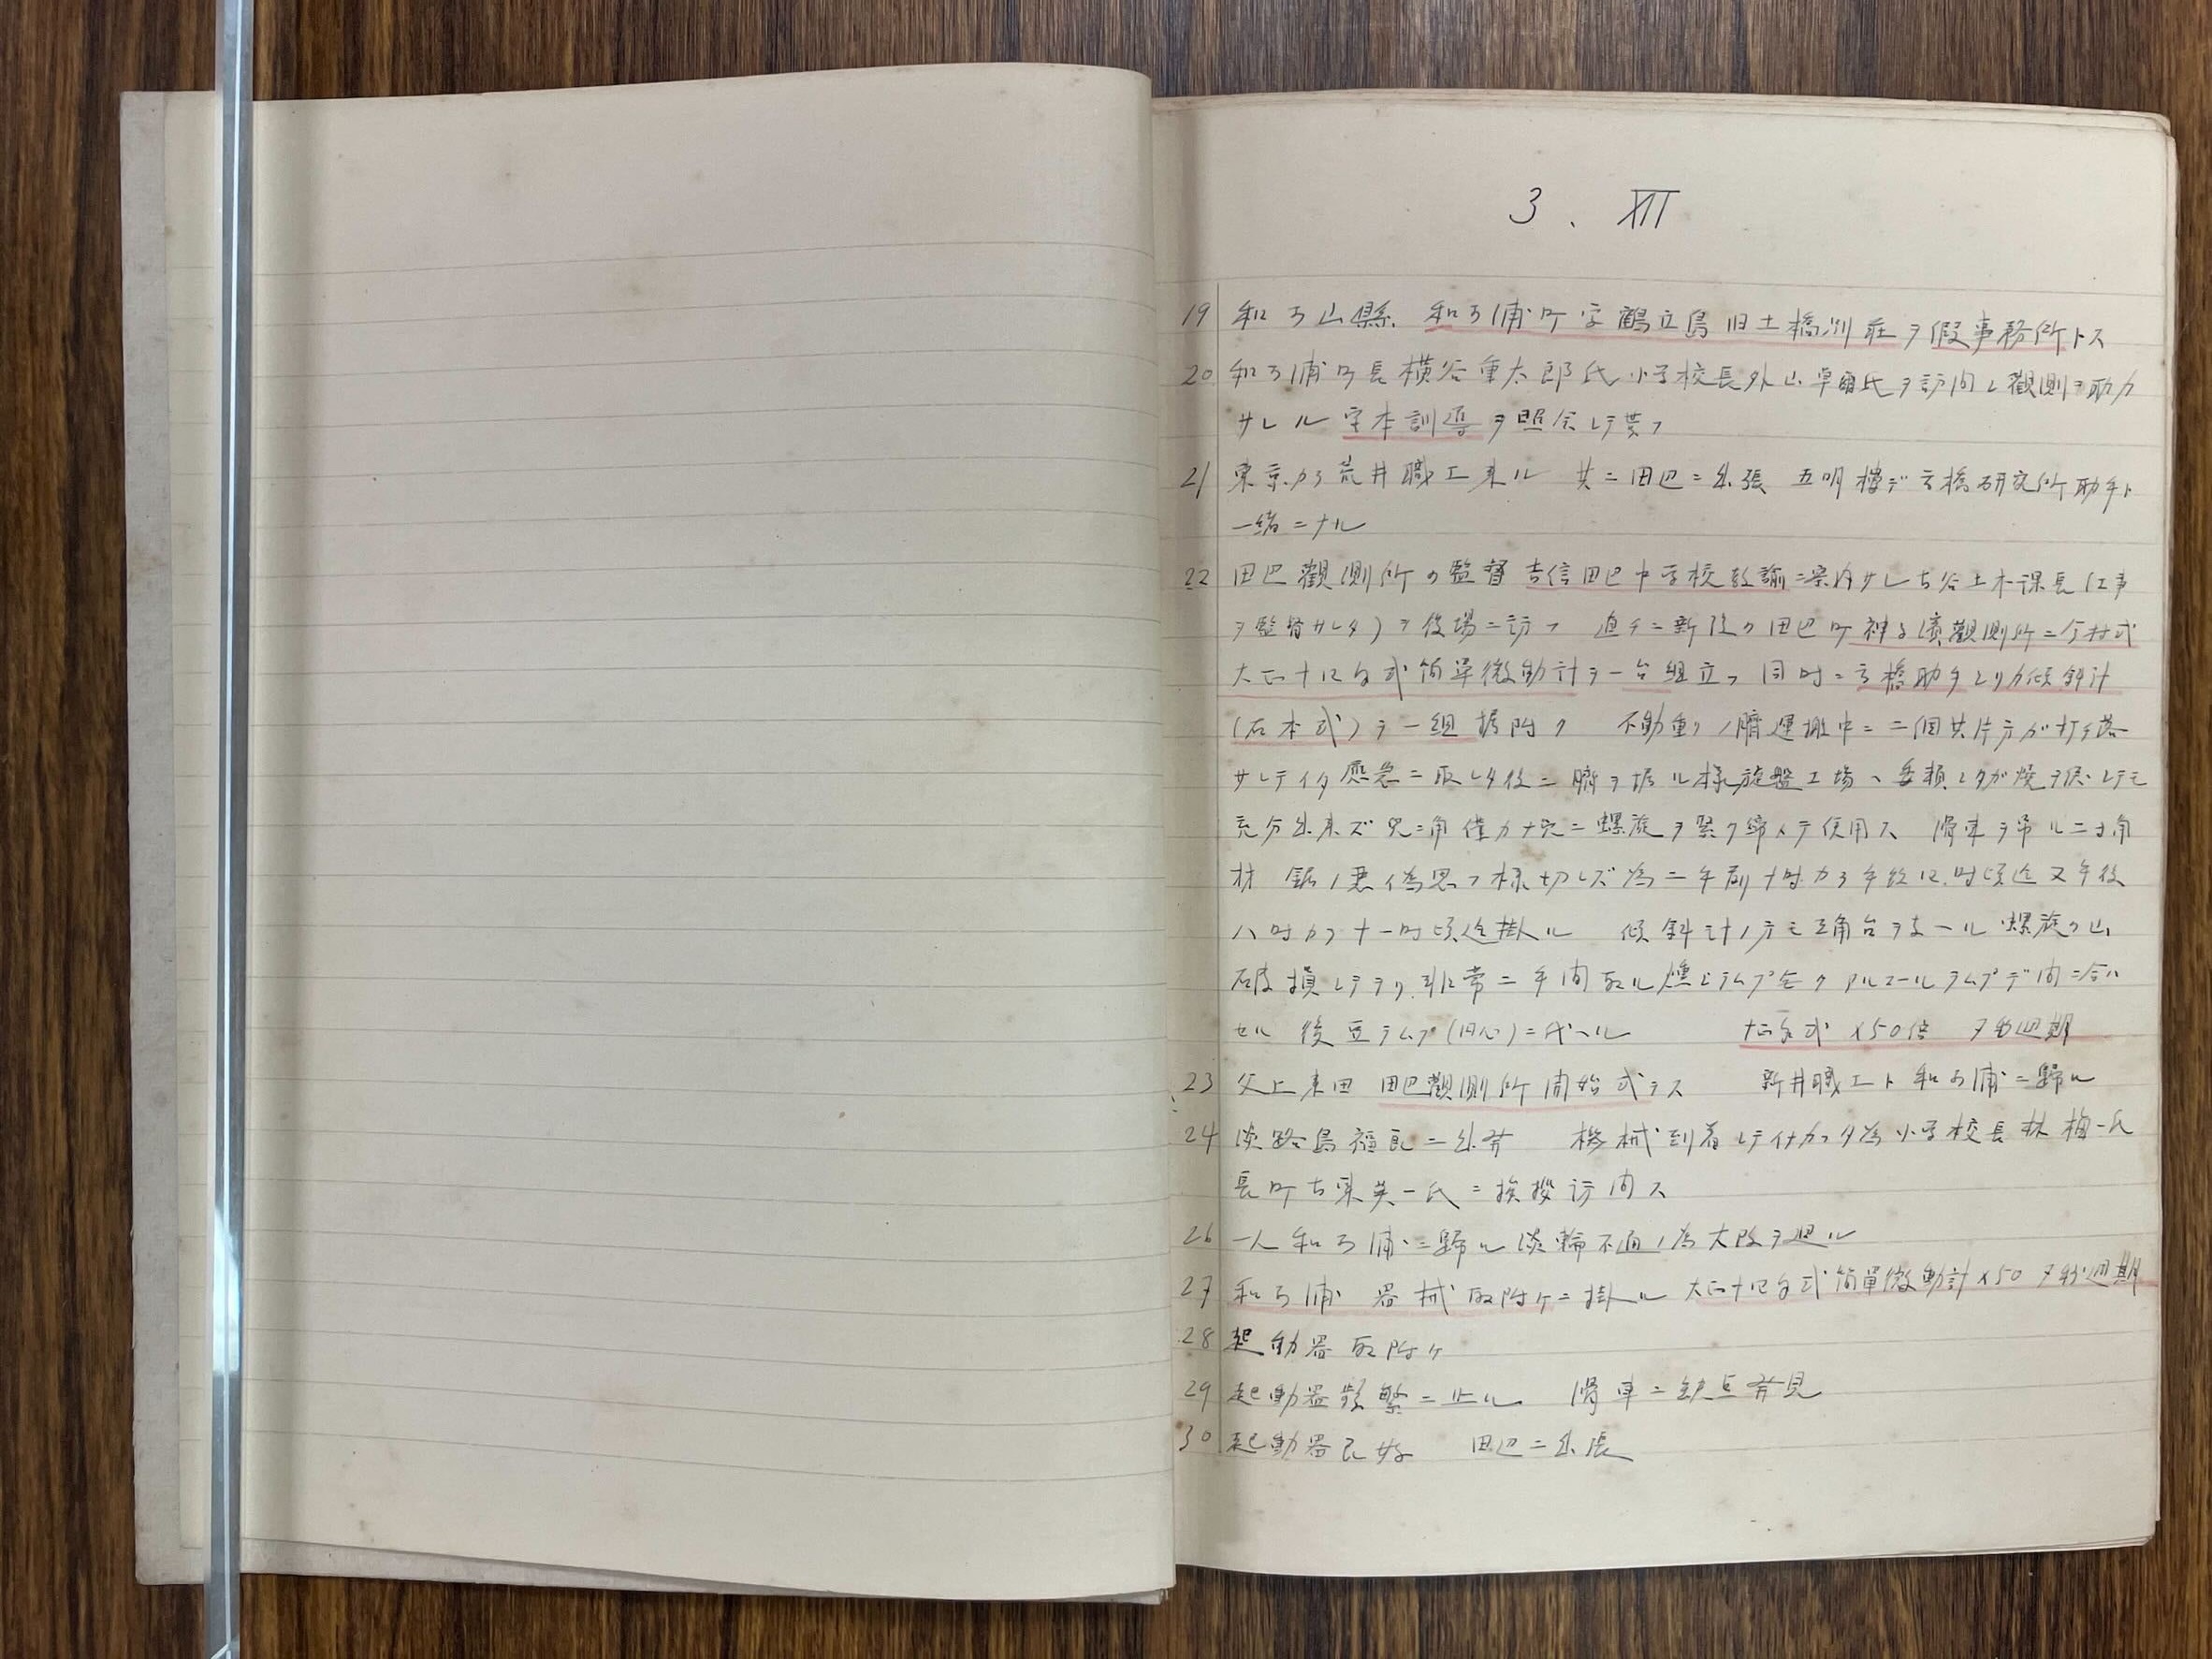 3. XII
19 和歌山縣 和歌浦町字鶴立島旧土橋別荘ヲ假事務所トス
20 和歌浦町長横谷重太郎氏小学校長外山卓爾氏ヲ訪問シ觀測ヲ助力
サレル 訓導ヲ照会シテ貰フ
21 東京カラ荒井職工来ル 共ニ田辺ニ出張 五明楼デ高橋研究所助手ト
一緒ニナル
22 田辺觀測所ノ監督吉信田辺中学校教諭ニ案内サレ古谷土木課長(工事
ヲ監督サレタ)ヲ役場ニ訪フ 直チニ新設ノ田辺町神子濱觀測所ニ今村式
大正十四年式簡単微動計ヲ一台組立フ 同時ニ高橋助手ヨリカ傾斜計
(石本式)ヲ一組据附ク 不動重リノ臍運搬中ニ二個共片方ガ打チ落
サレテイタ應急ニ取レタ後ニ臍ヲ掘ル様旋盤工場ヘ委頼シタガ焼ヲ シテモ
充分出来ズ兎ニ角僅カナ穴ニ螺旋ヲ緊ク締メテ使用ス 滑車ヲ吊ル二寸角
材 鋸ノ悪イ為思フ様切レズ為ニ午前十時カラ午後四時頃迄又午後
八時カラ十一時頃迄掛ル 傾斜計ノ方モ三角台ヲ支ヘル螺旋ノ山
破損シテヲリ非常ニ手間取ル燻シラムプモ アルコールラムプデ間ニ合ハ
セル 後豆ラムプ( )ニ代ヘル 大正 年式 ×50倍 7秒週期
23 父上来田 田辺觀測所開始式ヲス 新井職工ト和歌浦ニ歸ル
24 淡路島福良ニ出発 機械到着シテイナカッタ為小学校長林梅一氏
長町古東英一氏ニ挨拶訪問ス
26 一人和歌浦ニ歸ル淡輪不通ノ為大阪ヲ廻ル
27 和歌浦 器械取附ケニ掛ル 大正十四年式簡單微動計×50 7秒週期
28 起動器取附ケ
29 起動器頻繁ニ止ル 滑車ニ缺点発見
30 起動器良好 田辺ニ出張